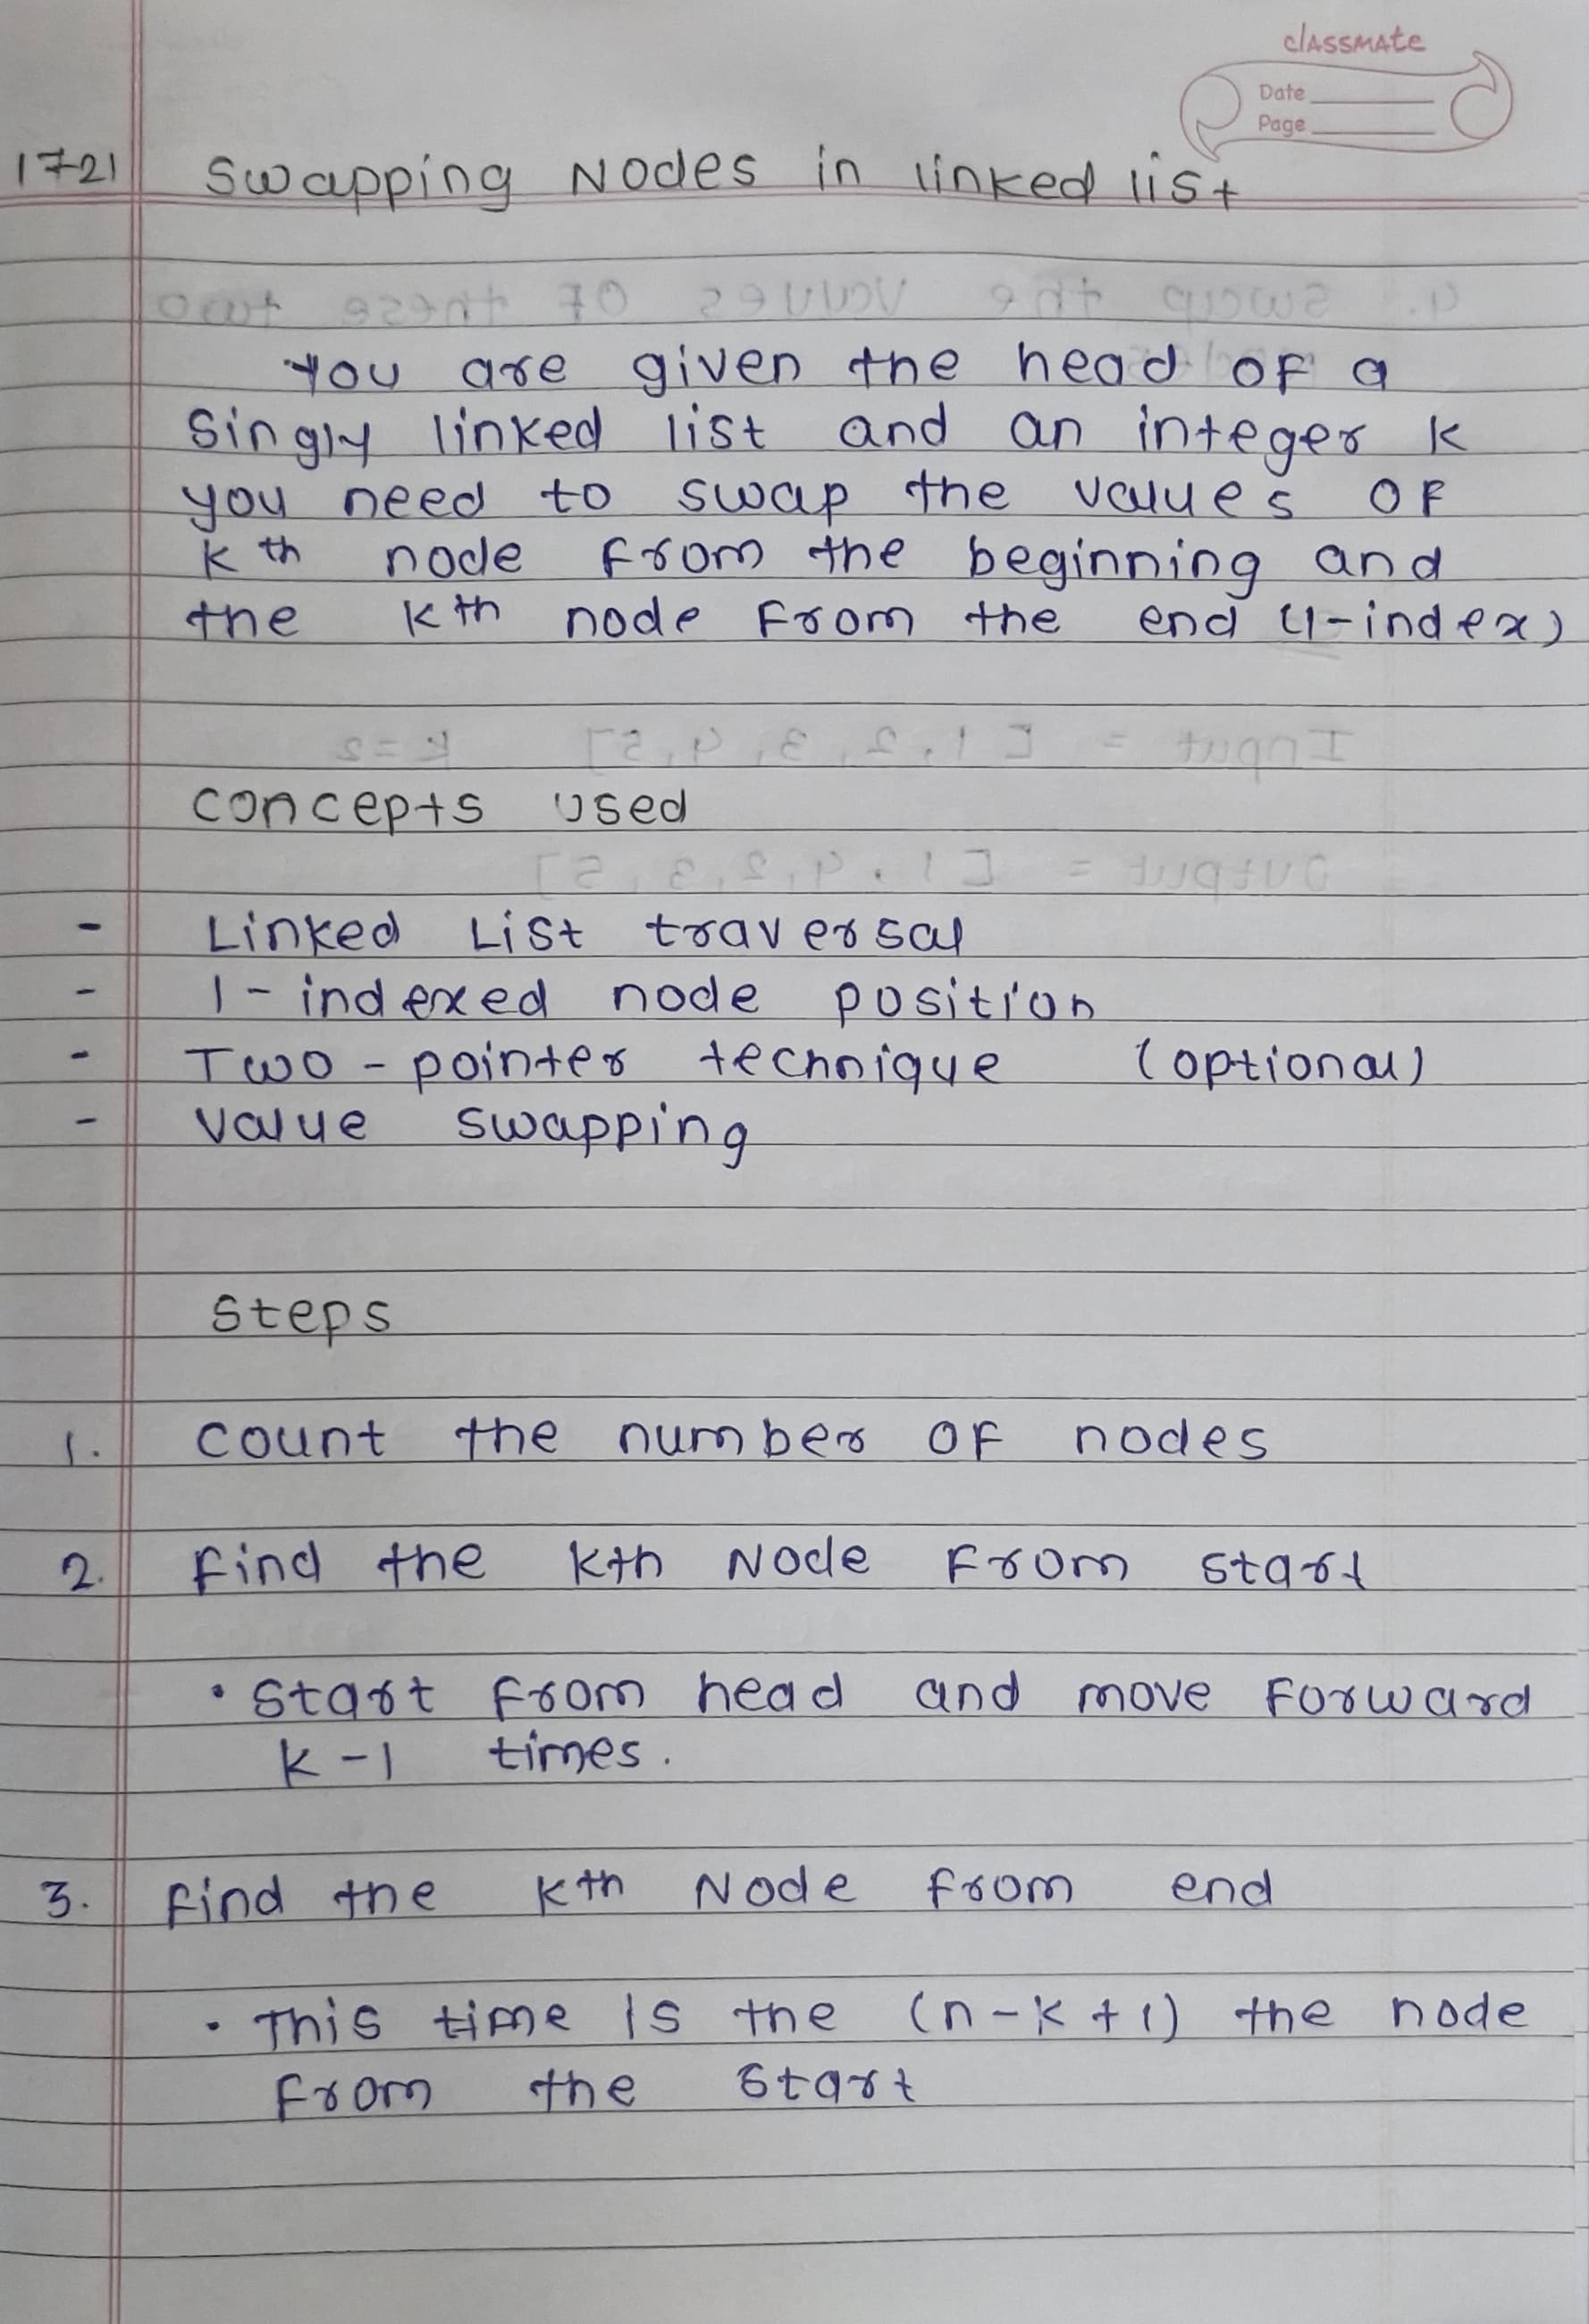 classmate
Date
Page
1721 Swapping Nodes in linked list
4. Swap the values of these two
You are given the head of a
Singly linked list and an integer k
you need to swap the values of
kth node from the beginning and
the kth node from the end (1-index)
Input = [1,2,3,4,5] k=2
concepts used
Output = [1,4,2,3,5]
- Linked List traversal
- 1-indexed node position
- Two-pointer technique (optional)
- Value swapping
Steps
1. Count the number of nodes
2. Find the kth Node from start
• Start from head and move forward
k-1 times.
3. Find the kth Node from end
• This time is the (n-k+1) the node
from the start